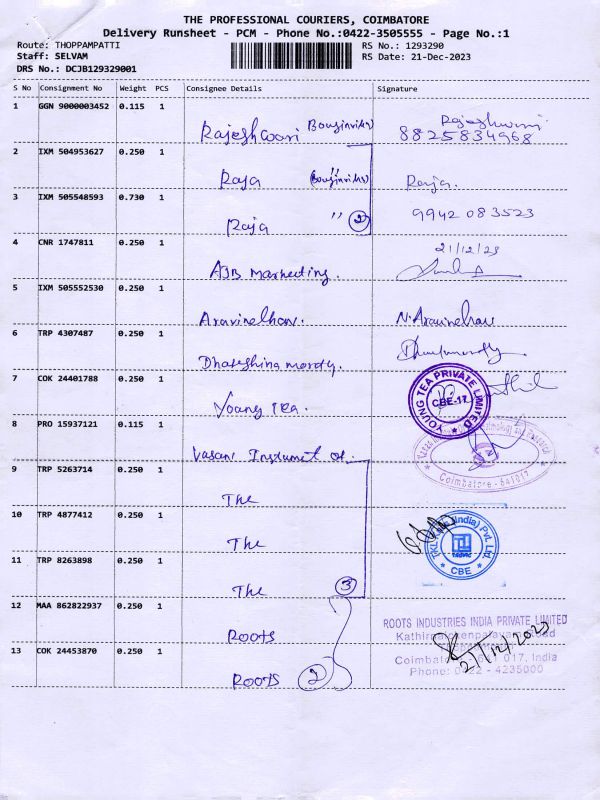 THE PROFESSIONAL COURIERS, COIMBATORE
Delivery Runsheet - PCM - Phone No.:0422-3505555 - Page No.:1
Route: THOPPAMPATTI
Staff: SELVAM
DRS No.: DCJB129329001
RS No.: 1293290
RS Date: 21-Dec-2023
S No Consignment No Weight PCS Consignee Details Signature
1 GGN 9000003452 0.115 1 Rajeshwari Rajeshwari
8825834968
2 IXM 504953627 0.250 1 Raja Raja.
3 IXM 505548593 0.730 1 Raja " 2 9942 083523
4 CNR 1747811 0.250 1 AJB Marketing. 21/12/23
5 IXM 505552530 0.250 1 Aravindhan. N. Aravindhan
6 TRP 4307487 0.250 1
7 COK 24401788 0.250 1 Young Tea.
YOUNG TEA PRIVATE LIMITED
CBE-17
8 PRO 15937121 0.115 1 Vasan of.
Coimbatore - 641017
9 TRP 5263714 0.250 1 The
10 TRP 4877412 0.250 1 The
(India) Pvt. Ltd.
CBE
11 TRP 8263898 0.250 1 The 3
12 MAA 862822937 0.250 1 Roots
ROOTS INDUSTRIES INDIA PRIVATE LIMITED
Road
13 COK 24453870 0.250 1 Roots 2
017, India
21/12/2023
Phone: 0422 - 4235000